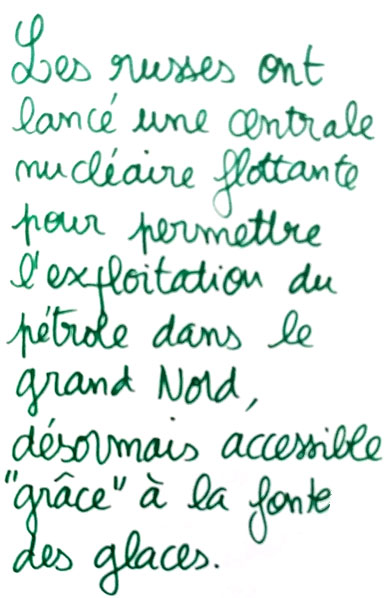 Les russes ont
lancé une centrale
nucléaire flottante
pour permettre
l'exploitation du
pétrole dans le
grand Nord,
désormais accessible
"grâce" à la fonte
des glaces.